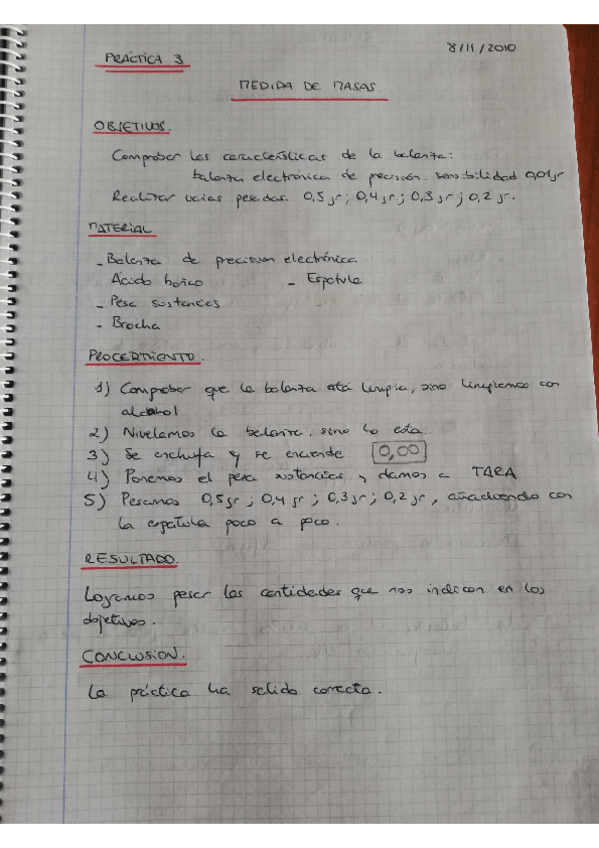 8/11/2010
PRÁCTICA 3
MEDIDA DE MASAS.
OBJETIVOS.
Comprobar las características de la balanza:
balanza electrónica de precisión. sensibilidad 0,01gr
Realizar varias pesadas. 0,5 gr; 0,4 gr; 0,3 gr; 0,2 gr.
MATERIAL
- Balanza de precision electrónica
- Acido borico - Espatula
- Pesa sustancias
- Brocha
PROCEDIMIENTO.
1) Comprobar que la balanza está limpia, sino limpiamos con
alcohol
2) Nivelamos la balanza, sino lo esta.
3) Se enchufa y se enciende 0,00
4) Ponemos el pesa sustancias y damos a TARA
5) Pesamos 0,5 gr; 0,4 gr; 0,3 gr; 0,2 gr, añadiendo con
la espátula poco a poco.
RESULTADO.
Logramos pesar las cantidades que nos indican en los
objetivos.
CONCLUSION.
La práctica ha salido correcta.